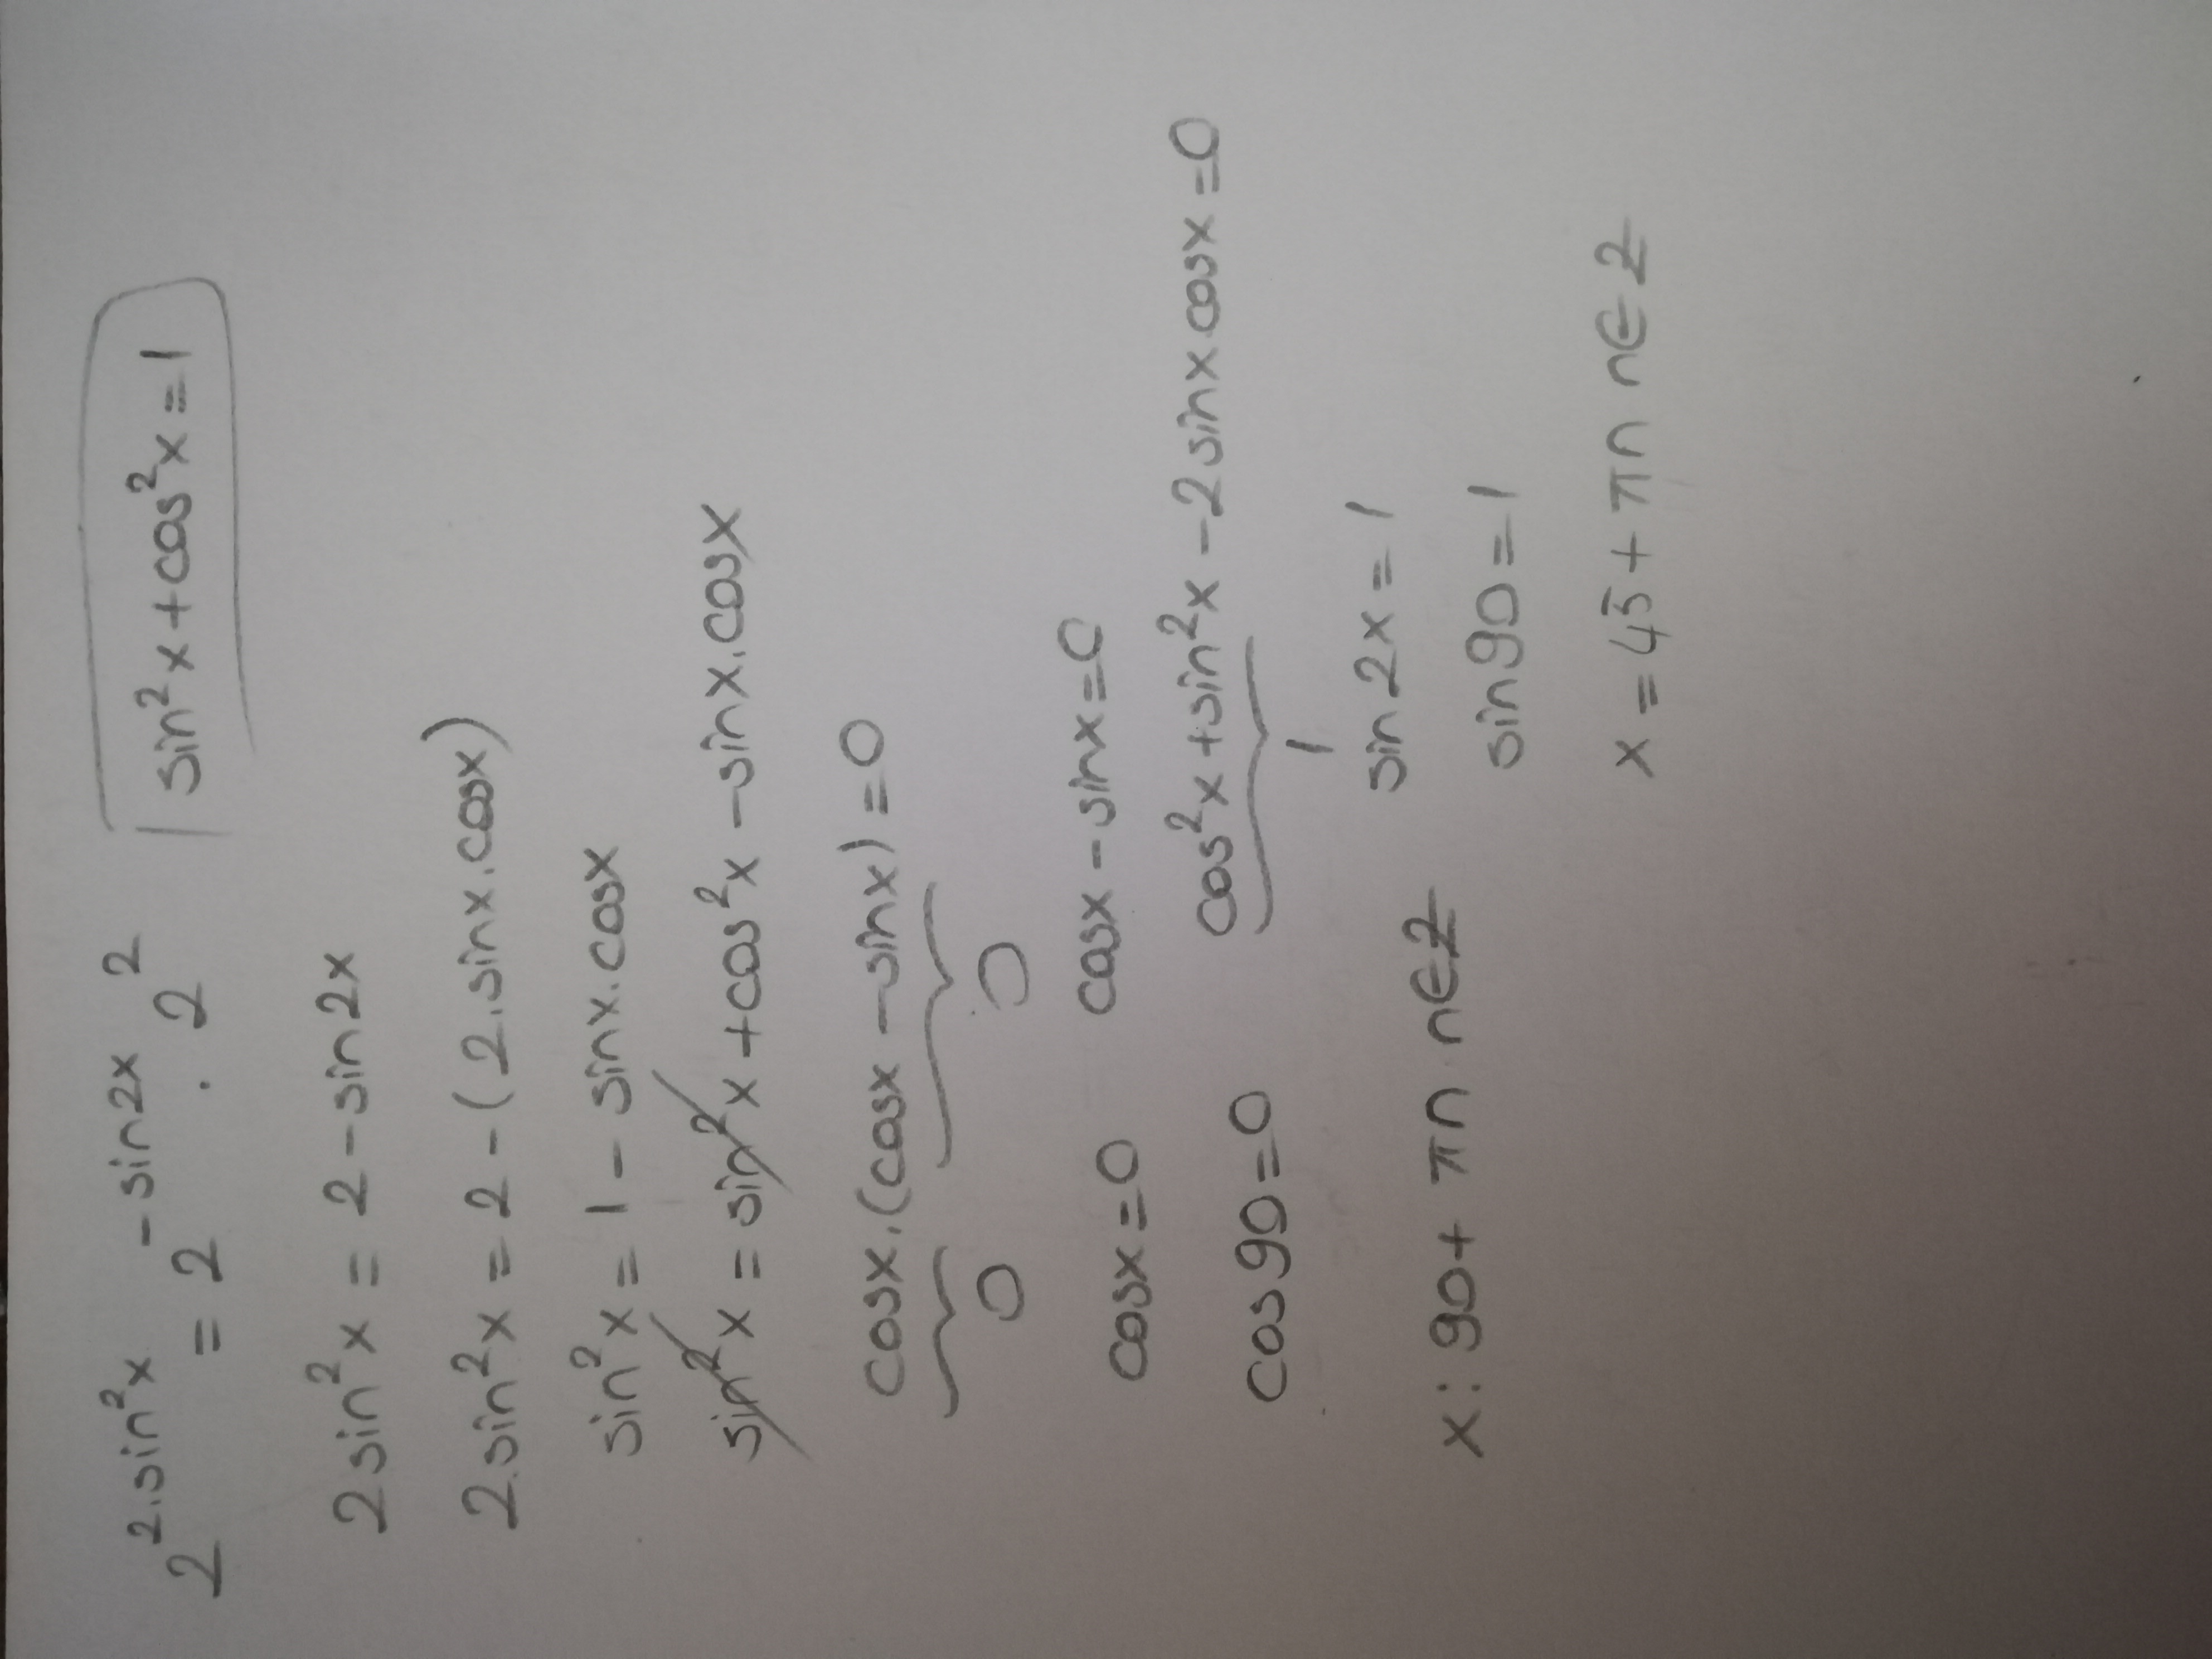 2^(2.sin²x) = 2^(-sin2x) . 2² | sin²x + cos²x = 1
2sin²x = 2 - sin2x
2.sin²x = 2 - (2.sinx.cosx)
sin²x = 1 - sinx.cosx
sin²x = sin²x + cos²x - sinx.cosx
cosx.(cosx - sinx) = 0
0 0
cosx = 0 cosx - sinx = 0
cos90 = 0 cos²x + sin²x - 2sinx cosx = 0
1
x: 90 + πn n∈Z sin2x = 1
sin90 = 1
x = 45 + πn n∈Z